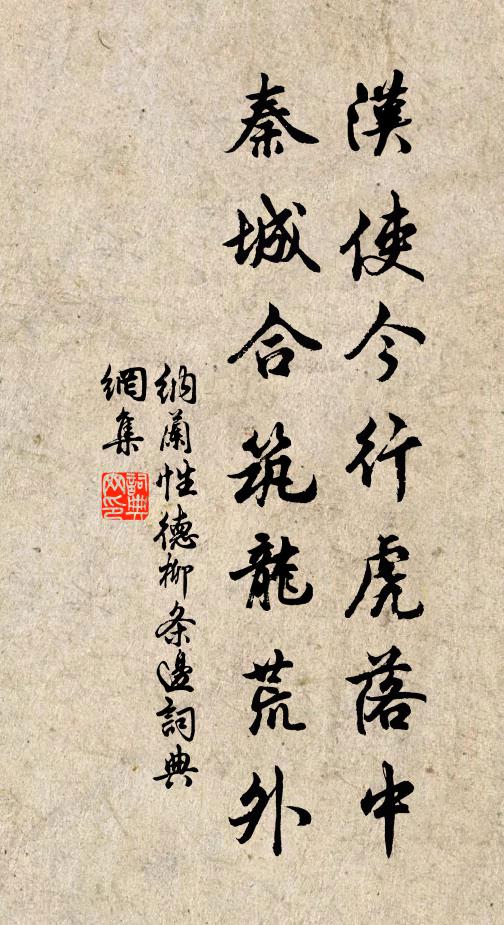 漢使今行虎落中
秦城合筑龍荒外
納蘭性德柳条邊詞典
網集
詞典
网印